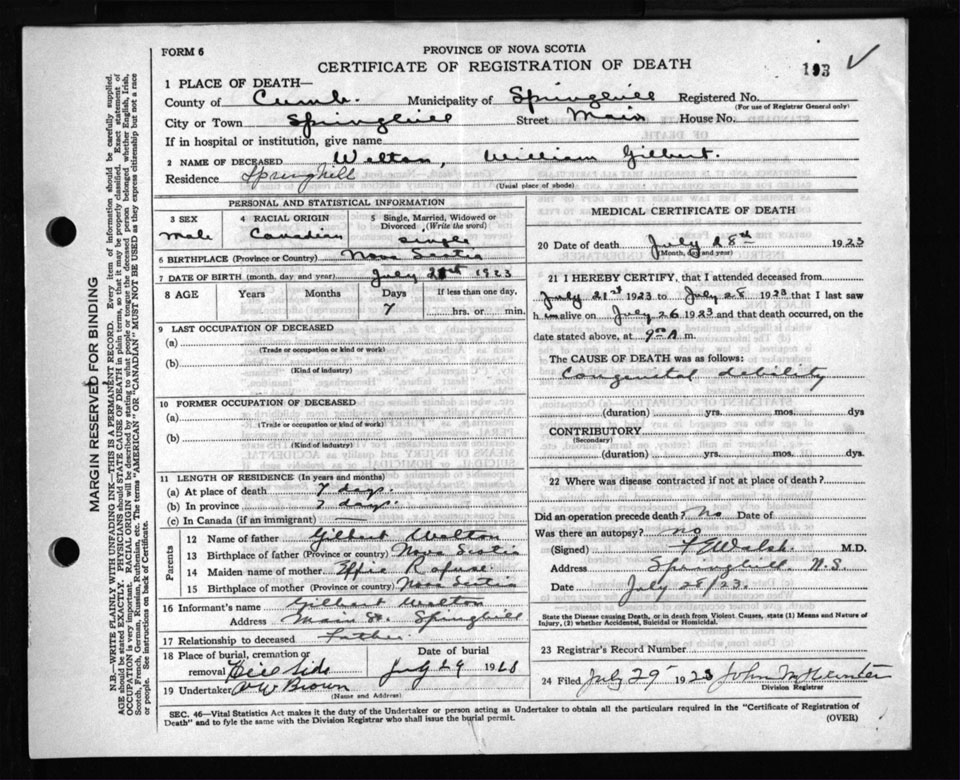 FORM 6
PROVINCE OF NOVA SCOTIA
CERTIFICATE OF REGISTRATION OF DEATH
193
1 PLACE OF DEATH—
County of Cumb. Municipality of Springhill Registered No.
(For use of Registrar General only)
City or Town Springhill Street Main House No.
If in hospital or institution, give name
2 NAME OF DECEASED Welton, William Gilbert.
Residence Springhill
(Usual place of abode)
PERSONAL AND STATISTICAL INFORMATION
3 SEX 4 RACIAL ORIGIN 5 Single, Married, Widowed or Divorced (Write the word)
Male Canadian single
6 BIRTHPLACE (Province or Country) Nova Scotia
7 DATE OF BIRTH (month, day and year) July 21st 1923
8 AGE Years Months Days If less than one day.
7 hrs. or min.
9 LAST OCCUPATION OF DECEASED
(a)
(Trade or occupation or kind or work)
(b)
(Kind of industry)
10 FORMER OCCUPATION OF DECEASED
(a)
(Trade or occupation or kind of work)
(b)
(Kind of industry)
11 LENGTH OF RESIDENCE (In years and months)
(a) At place of death 7 days.
(b) In province 7 days.
(c) In Canada (if an immigrant)
Parents
12 Name of father Gilbert Welton
13 Birthplace of father (Province or country) Nova Scotia
14 Maiden name of mother Effie Rafuse.
15 Birthplace of mother (Province or country) Nova Scotia
16 Informant's name Gilbert Welton
Address Main St. Springhill
17 Relationship to deceased Father.
18 Place of burial, cremation or removal Hillside Date of burial July 29 1923
19 Undertaker A W Brown
(Name and Address)
MEDICAL CERTIFICATE OF DEATH
20 Date of death July 28th 1923
(Month, day and year)
21 I HEREBY CERTIFY, that I attended deceased from
July 21st 1923 to July 28 1923 that I last saw
him alive on July 26 1923 and that death occurred, on the
date stated above, at 9 00 A m.
The CAUSE OF DEATH was as follows:
Congenital debility
(duration) yrs. mos. dys
CONTRIBUTORY
(Secondary)
(duration) yrs. mos. dys.
22 Where was disease contracted if not at place of death?
Did an operation precede death? No Date of
Was there an autopsy? no
(Signed) Walsh M.D.
Address Springhill N.S
Date July 28/23.
State the Disease causing Death, or in death from Violent Causes, state (1) Means and Nature of Injury, (2) whether Accidental, Suicidal or Homicidal.
23 Registrar's Record Number
24 Filed July 29 1923 John M Hunter
Division Registrar
SEC. 46—Vital Statistics Act makes it the duty of the Undertaker or person acting as Undertaker to obtain all the particulars required in the "Certificate of Registration of
Death" and to fyle the same with the Division Registrar who shall issue the burial permit.
(OVER)
MARGIN RESERVED FOR BINDING
N.B.—WRITE PLAINLY WITH UNFADING INK—THIS IS A PERMANENT RECORD. Every item of information should be carefully supplied.
AGE should be stated EXACTLY. PHYSICIANS should STATE CAUSE OF DEATH in plain terms, so that it may be properly classified. Exact statement of
OCCUPATION is very important. RACIAL ORIGIN will be described by stating to what people or tongue the deceased person belonged whether English, Irish,
Scotch, French, German, Russian, Ruthenian, etc. The terms "AMERICAN" OR "CANADIAN" MUST NOT BE USED as they express citizenship but not a race
or people. See instructions on back of Certificate.